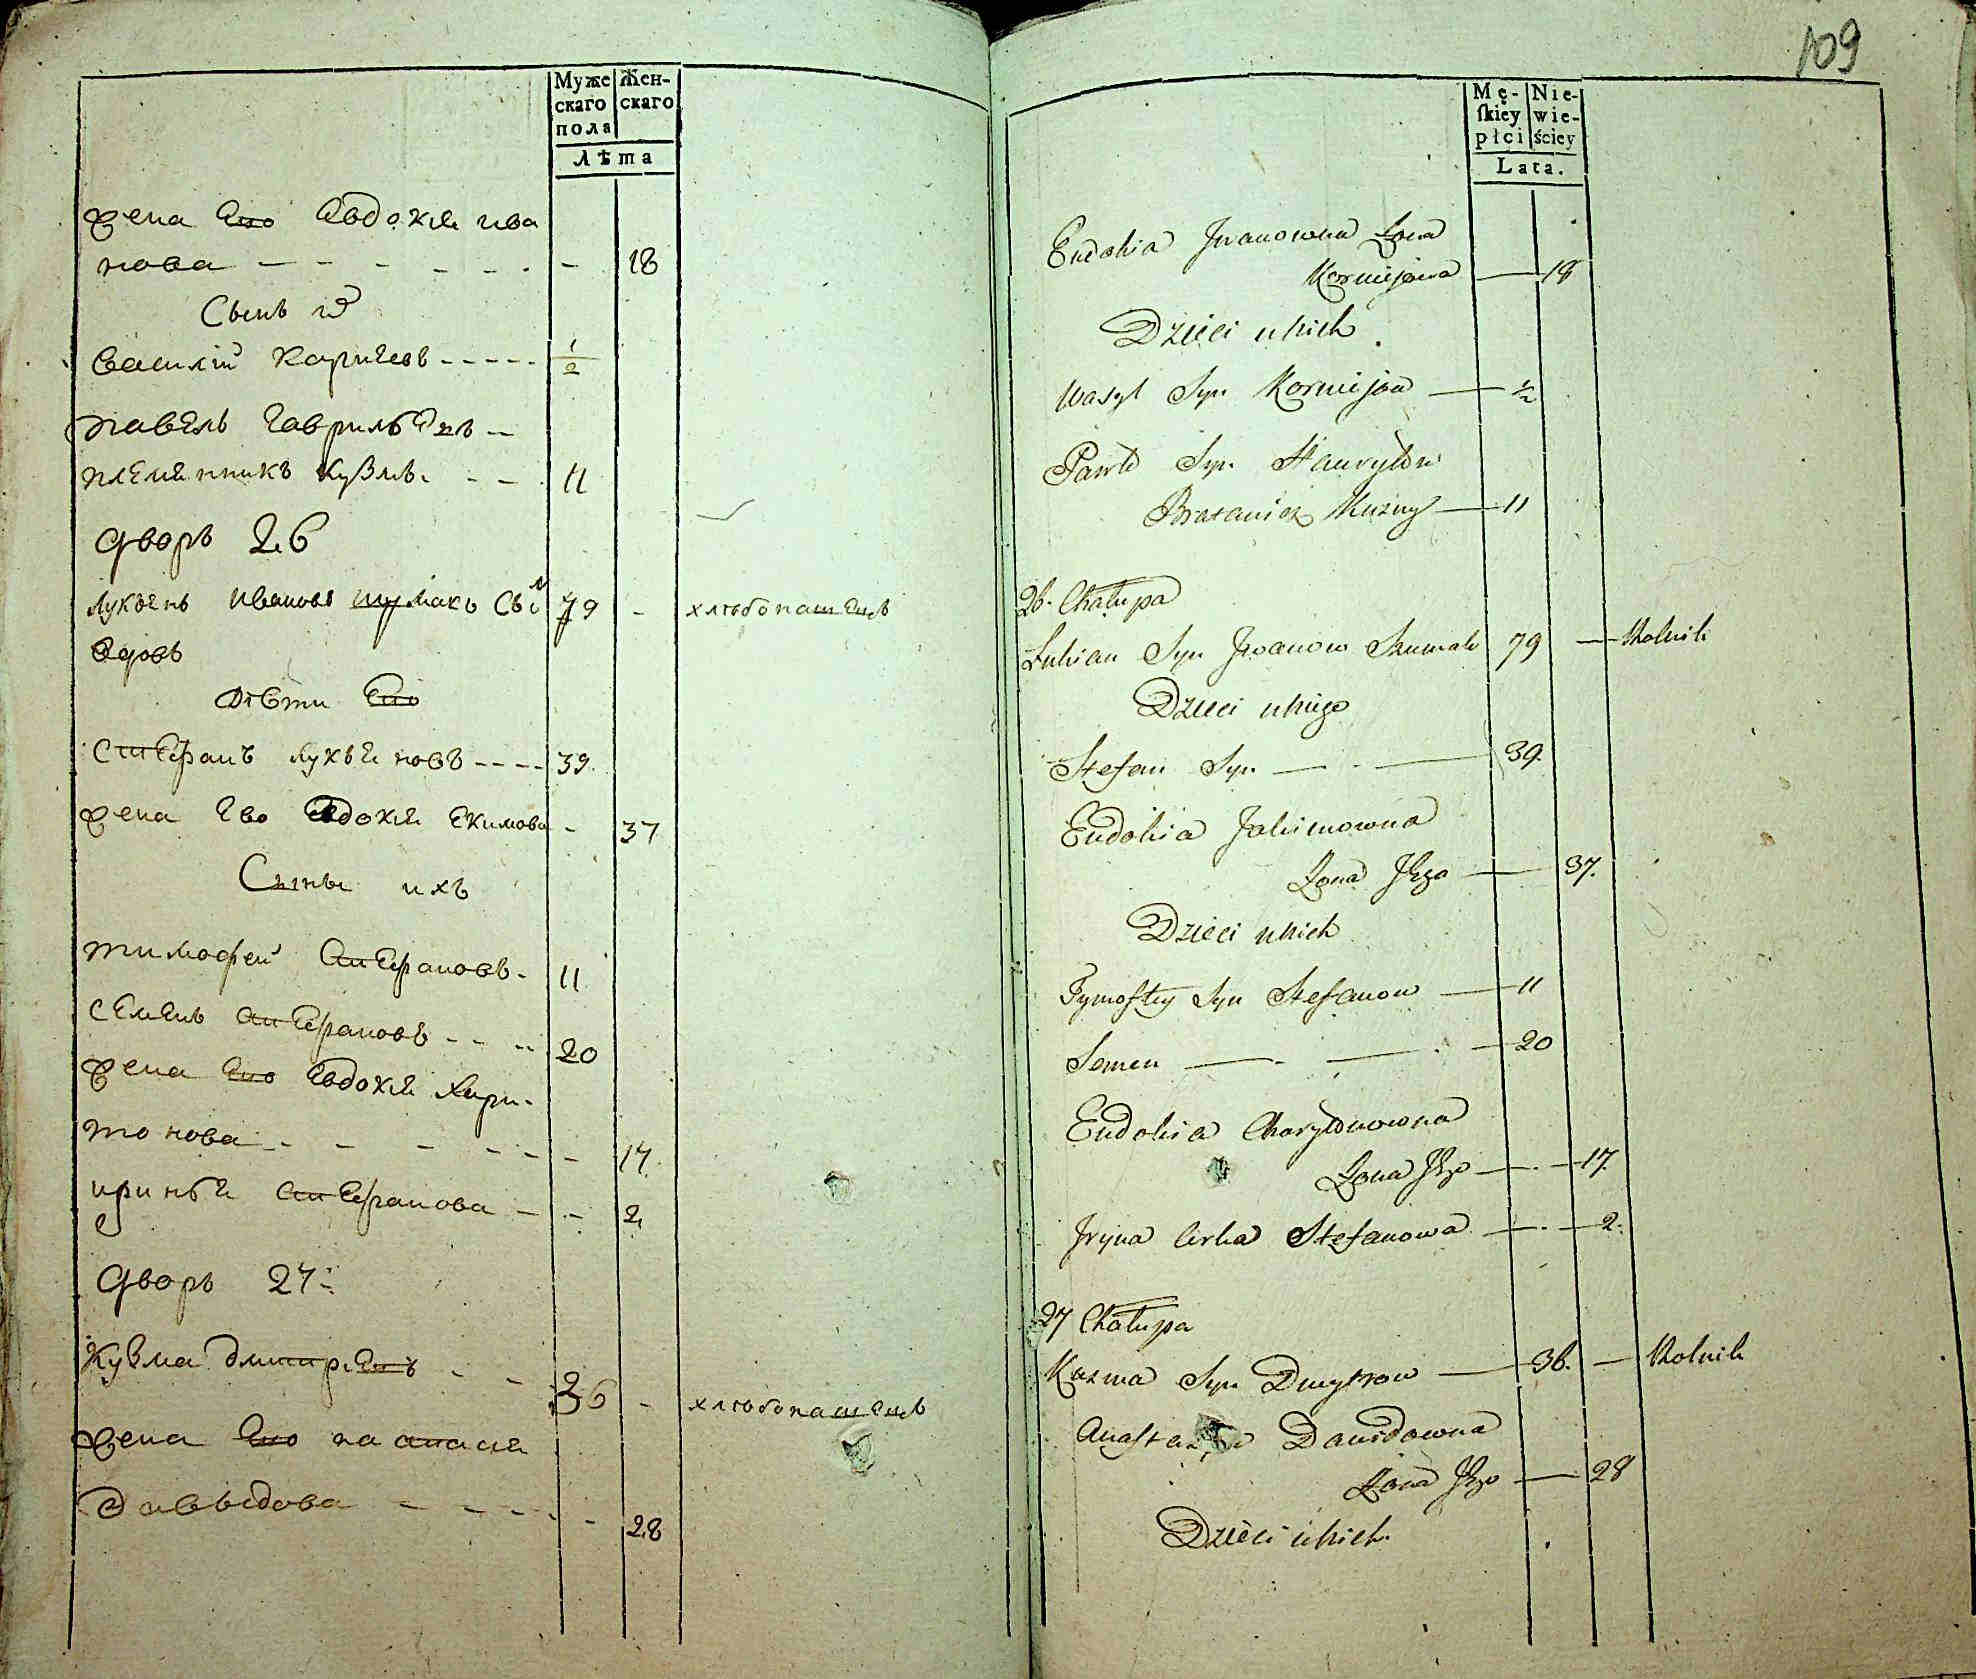 Муже
скаго
пола
Жен-
скаго
лѣта
жена Его Евдокия ива
нова 18
Сынъ их
Василий Карнеевъ 1/2
павелъ Гаврильевъ
племянникъ Кузмы 11
Дворъ 26
Лукьянъ Ивановъ шумакъ 79 - хлѣбопашецъ
Вдовъ
дѣти Его
Стефанъ лукьяновъ 39
жена Ево Евдокия Екимова 37
Сыны ихъ
тимофей Стефановъ 11
Семенъ Стефановъ 20
жена Его Евдокия Хари-
тонова 17
иринья Стефанова 2
Дворъ 27
Кузма дмитриевъ 36 - хлѣбопашецъ
жена Его настасия
Давыдова 28
109
Mę-
ſkiey
płci
Nie-
wie-
ściey
Lata.
Eudokia Jwanowna Zona
Korniejowa 18
Dzieci ukich
Wasyl Syn Korniejow 1/2
Paweł Syn Hawryłow
Bratanick Kuzmy 11
26. Chałupa
Łukian Syn Jwanow Szumak 79 — Rolnik
Dzieci ukiego
Stefan Syn 39.
Eudokia Jakimowna
Zona Jego 37.
Dzieci ukich
Tymoftey Syn Stefanow 11
Semen 20
Eudokia Charytonowna
Zona Jego 17.
Jryna Corka Stefanowa 2.
27 Chałupa
Kuzma Syn Dmytrow 36. — Rolnik
Dawidowna
Zona Jego 28
Dzieci ukich